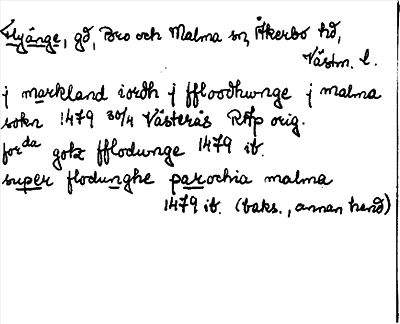 Flyänge, gd, Bro och Malma sn, Åkerbo hd,
Västm. l.
j markland iordh j ffloodhwnge j malma
sokn 1479 30/4 Västerås RAp orig.
forda gotz fflodwnge 1479 ib.
super flodunghe parochia malma
1479 ib. (baks., annan hand)